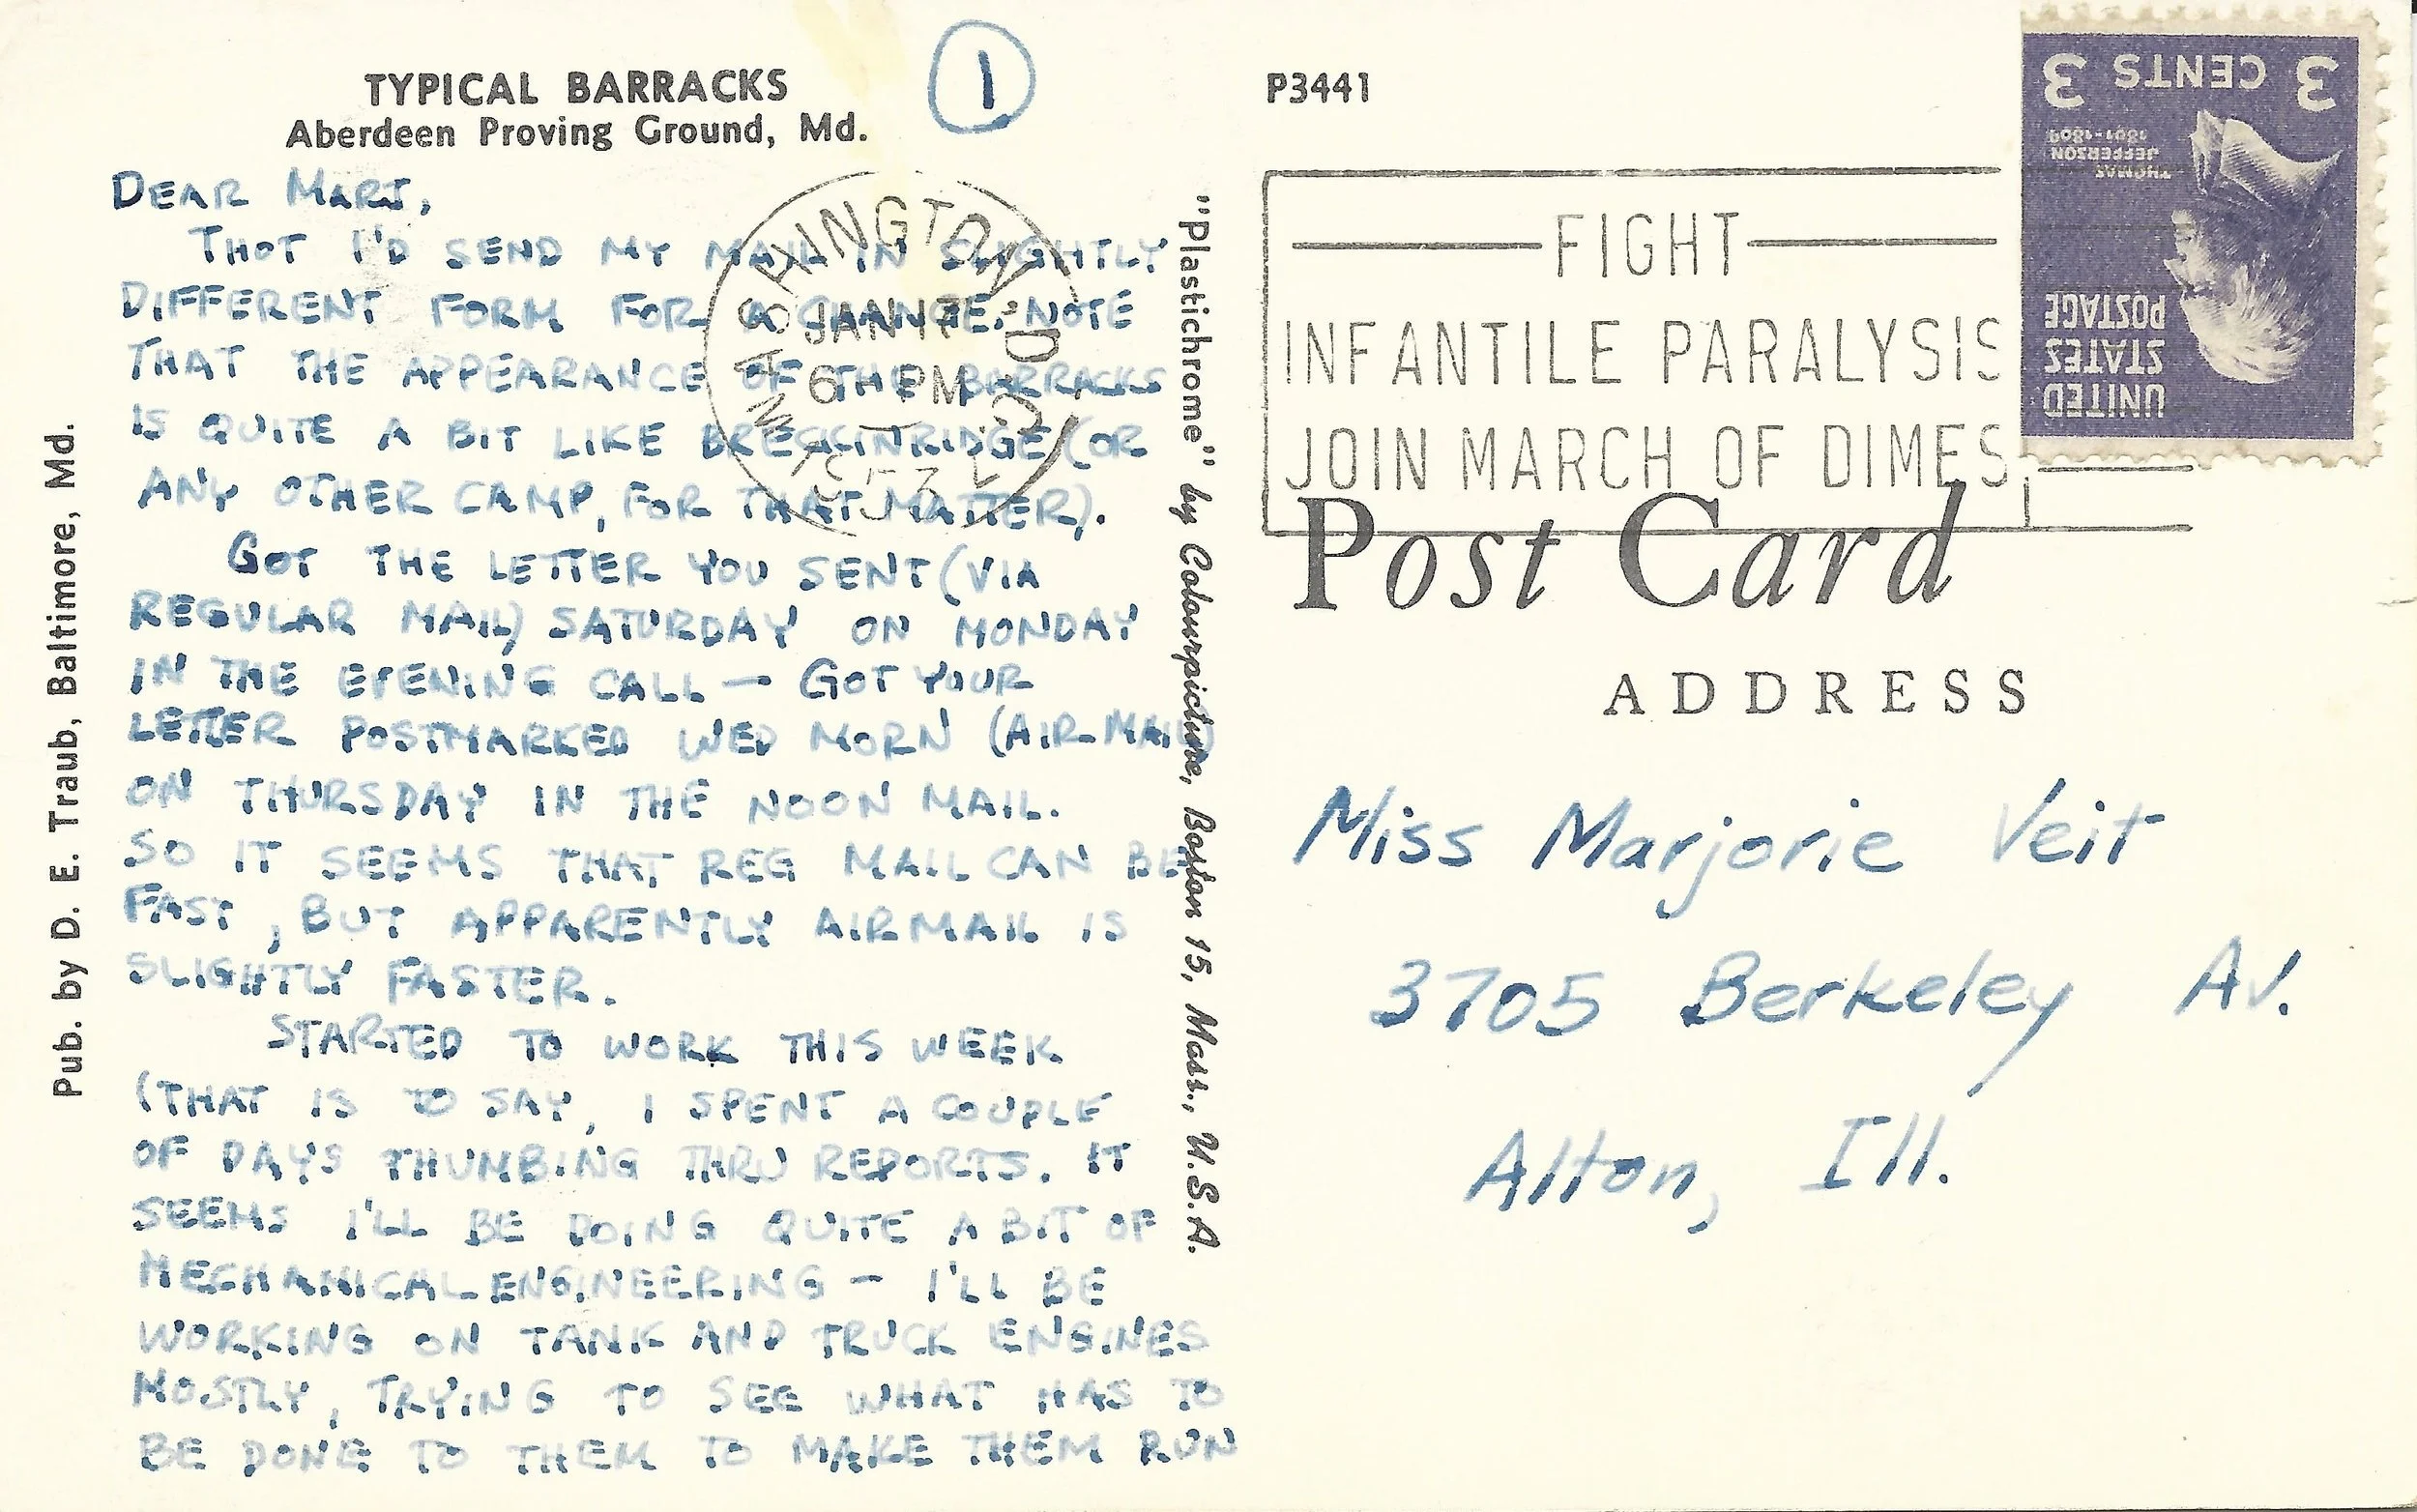 TYPICAL BARRACKS
Aberdeen Proving Ground, Md.
1
DEAR MARJ,
THOT I'D SEND MY MAIL IN SLIGHTLY
DIFFERENT FORM FOR A CHANGE. NOTE
THAT THE APPEARANCE OF THE BARRACKS
IS QUITE A BIT LIKE BRECKINRIDGE (OR
ANY OTHER CAMP, FOR THAT MATTER).
GOT THE LETTER YOU SENT (VIA
REGULAR MAIL) SATURDAY ON MONDAY
IN THE EVENING CALL — GOT YOUR
LETTER POSTMARKED WED MORN (AIR MAIL)
ON THURSDAY IN THE NOON MAIL.
SO IT SEEMS THAT REG MAIL CAN BE
FAST, BUT APPARENTLY AIRMAIL IS
SLIGHTLY FASTER.
STARTED TO WORK THIS WEEK
(THAT IS TO SAY, I SPENT A COUPLE
OF DAYS THUMBING THRU REPORTS. IT
SEEMS I'LL BE DOING QUITE A BIT OF
MECHANICAL ENGINEERING — I'LL BE
WORKING ON TANK AND TRUCK ENGINES
MOSTLY, TRYING TO SEE WHAT HAS TO
BE DONE TO THEM TO MAKE THEM RUN
Pub. by D. E. Traub, Baltimore, Md.
"Plastichrome" by Colourpicture, Boston 15, Mass., U.S.A.
WASHINGTON, D.C.
JAN 17
6 PM
1953
P3441
FIGHT
INFANTILE PARALYSIS
JOIN MARCH OF DIMES
3 CENTS 3
1801-1809
JEFFERSON
THOMAS
POSTAGE
STATES
UNITED
Post Card
ADDRESS
Miss Marjorie Veit
3705 Berkeley Av.
Alton, Ill.